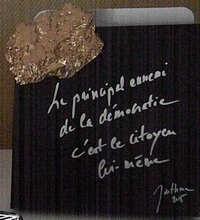 Le principal ennemi
de la démocratie
c'est le citoyen
lui-même